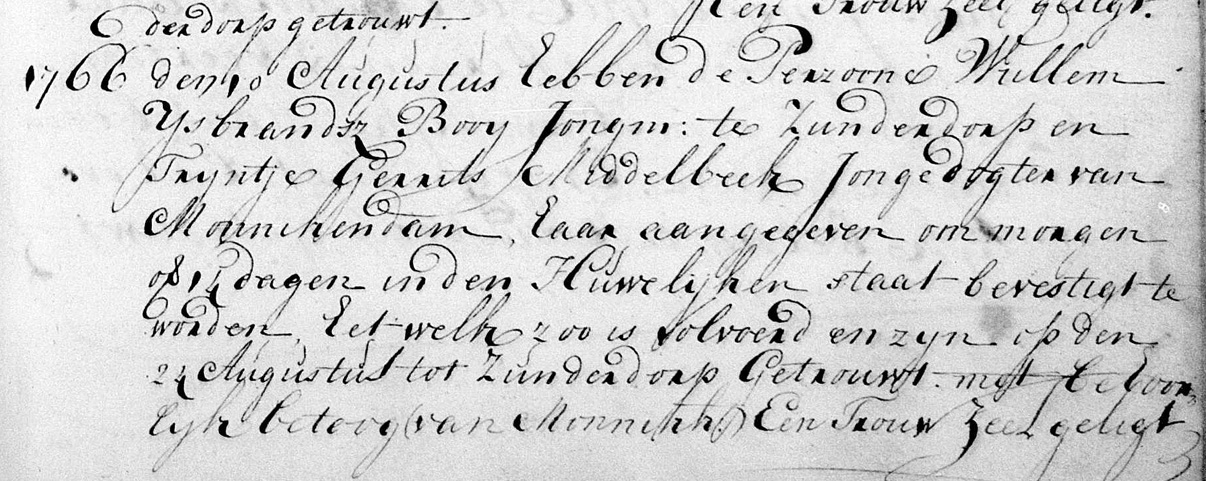 derdorp getrouwt.
Een Trouw Zeel geligt.
1766 den 10 Augustus hebben de Perzoone Willem
Ysbrandsz Booy Jongm: te Zunderdorp en
Tryntje Gerrits Middelbeek Jongedogter van
Monnikendam, haar aangegeven om morgen
of 14 dagen in den Huwelijken staat bevestigt te
worden, het welk zoo is volvoerd en zyn op den
24 Augustus tot Zunderdorp Getrouwt. met behoor-
lijk betoog (van Monnikk:) Een Trouw Zeel geligt